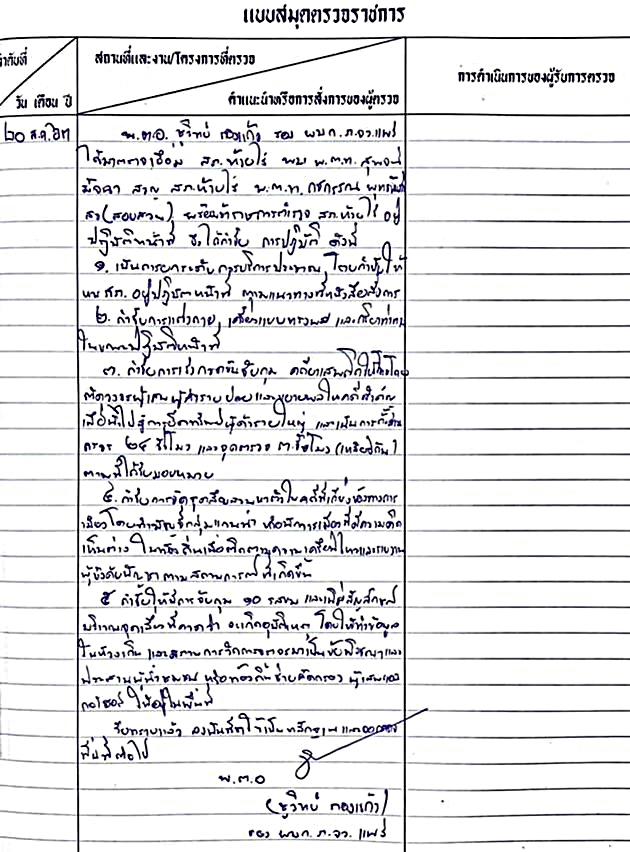 แบบสมุดตรวจราชการ
ลำดับที่
วัน เดือน ปี
สถานที่และงาน/โครงการที่ตรวจ
คำแนะนำหรือการสั่งการของผู้ตรวจ
การดำเนินการของผู้รับการตรวจ
๒๐ ส.ค.
พ.ต.อ. ชูวิทย์ กองแก้ว รอง ผบก.ภ.จว.แพร่
ได้มาตรวจเยี่ยม สภ.ห้วยไร่ พบ พ.ต.ท.
สวญ สภ.ห้วยไร่ พ.ต.ท.
สว(สอบสวน) พร้อมข้าราชการตำรวจ สภ.ห้วยไร่ อยู่
ปฏิบัติหน้าที่ จึงได้กำชับ การปฏิบัติ ดังนี้
๑. เน้นการยกระดับการบริการประชาชน โดยกำชับให้
หน.สภ. อยู่ปฏิบัติหน้าที่ ตามแนวทางที่หนังสือสั่งการ
๒. กำชับการแต่งกาย, เครื่องแบบทรงผม และกิริยาท่าทาง
ในขณะปฏิบัติหน้าที่
๓. กำชับการเร่งการจับกุม คดียาเสพติด
ตัดวงจรผู้เสพผู้ค้ารายย่อยและขยายผลในคดีสำคัญ
เพื่อนำไปสู่การยึดทรัพย์ผู้ค้ารายใหญ่ และเน้นการตั้งด่าน
ตรวจ ๒๔ ชั่วโมง และจุดตรวจ ๓ ชั่วโมง (เหลื่อมกัน)
ตามที่ได้รับมอบหมาย
๔. กำชับการจัดชุดสืบสวนหาข่าวในคดีที่เกี่ยวข้องทางการ
เมือง โดยสำคัญที่กลุ่มแกนนำ หรือนักการเมืองที่มีความคิด
เห็นต่าง ในพื้นที่ เพื่อติดตามความเคลื่อนไหวและรายงาน
ผู้บังคับบัญชาตามสถานการณ์ที่เกิดขึ้น
๕ กำชับให้มีการจับกุม ๑๐ รสขม และเพิ่มสัญลักษณ์
บริเวณจุดเสี่ยงที่คาดว่า จะเกิดอุบัติเหตุ โดยให้นำข้อมูล
ในห้วงเดิน และสถานการจัดการจราจรมาเป็นข้อพิจารณาและ
ประสานผู้นำชุมชน หรือท้องถิ่นช่วยคัดกรอง ผู้เสพแอล
กอฮอล์ ให้อยู่ในพื้นที่
จึงทราบแล้ว ลงบันทึกไว้เป็นหลักฐาน
สืบไป
พ.ต.อ
(ชูวิทย์ กองแก้ว)
รอง ผบก.ภ.จว. แพร่